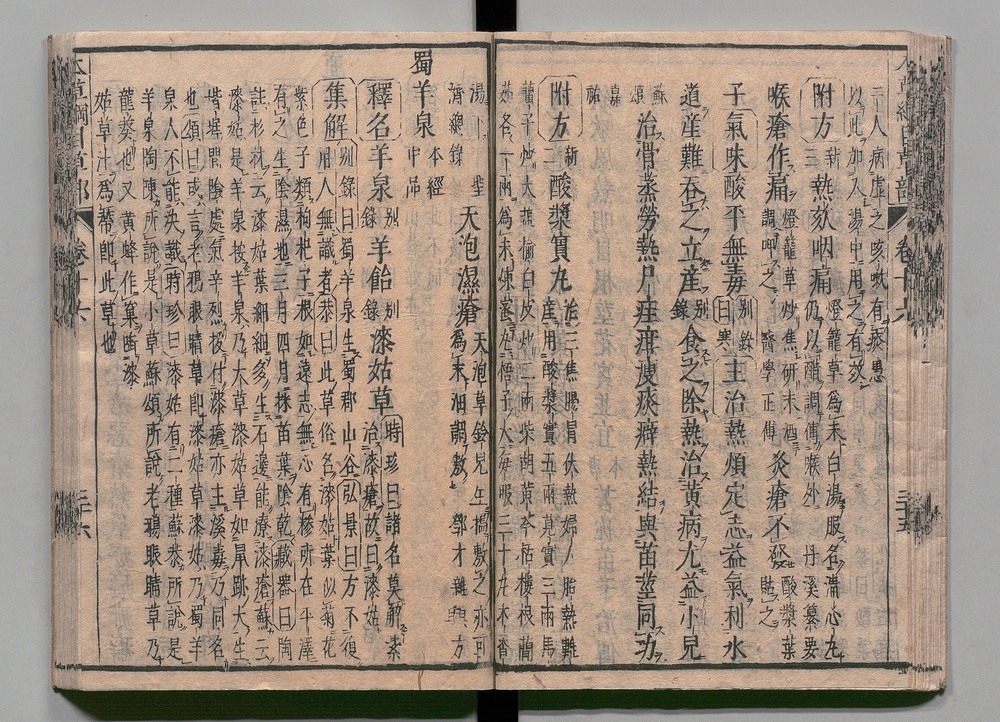 二人病虛乏咳嗽有痰愚
以此加入湯中用之有效
附方新三熱欬咽痛燈籠草爲末白湯服名清心丸仍以醋調傅喉外丹溪纂要
喉瘡作痛燈籠草炒焦研末酒調呷之醫學正傳灸瘡不發酸漿葉貼之
子氣味酸平無毒別錄曰寒主治熱煩定志益氣利水
道産難吞之立産別錄食之除熱治黃病尤益小兒
蘇頌治骨蒸勞熱尸疰疳瘦痰癖熱結與苗莖同功
嘉祐
附方新二酸漿實丸治三焦腸胃伏熱婦人胎熱難産用酸漿實五兩莧實三兩馬
藺子炒大鹽楡白皮炒二兩柴胡黃芩栝樓根䕡
茹各一兩爲末煉蜜丸梧子大每服三十丸木香
湯下聖
濟總錄天泡濕瘡天泡草鈴兒生搗敷之亦可爲末油調敷鄧才雜興方
蜀羊泉本經中品
釋名羊泉別錄羊飴別錄漆姑草時珍曰諸名莫解漆姑草治漆瘡故曰漆姑
集解別錄曰蜀羊泉生蜀郡山谷弘景曰方不復用人無識者恭曰此草俗名漆姑葉似菊花
紫色子類枸杞子根如遠志無心有糝所在平澤
有之生陰濕地三月四月採苗葉陰乾藏器曰陶
註杉材云漆姑葉細細多生石邊能療漆瘡蘇云
漆姑是羊泉按羊泉乃大草漆姑草如鼠跡大生
堦墀間陰處氣辛烈挼付漆瘡亦主溪毒乃同名
也頌曰或言老鴉眼睛草卽漆姑草漆姑乃蜀羊
泉人不能決識時珍曰漆姑有二種蘇恭所說是
羊泉陶陳所說是小草蘇頌所說老鴉眼睛草乃
龍葵也又黃蜂作窠啣漆
姑草汁爲蔕卽此草也
本草綱目草部 卷十六 三十六
本草綱目草部 卷十六 三十五